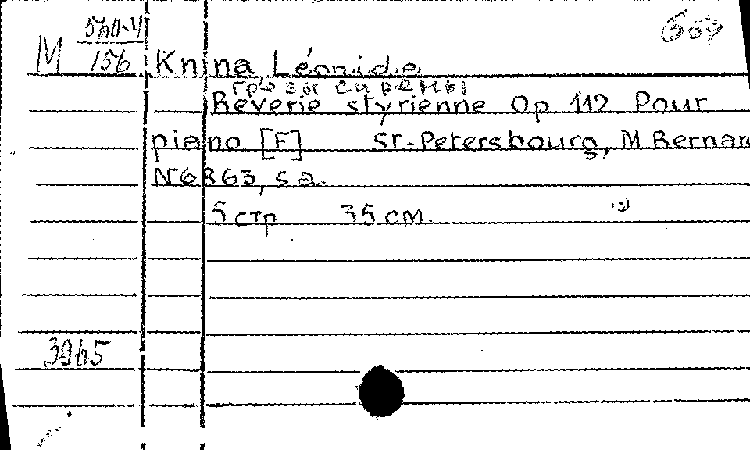 M 560-4/156
Knina, Léonide
Грезы сирены
Rêverie styrienne Op 112 Pour
piano [F] St.-Petersbourg, M Bernar
N6863, s a.
5 стр 35 см.
3965